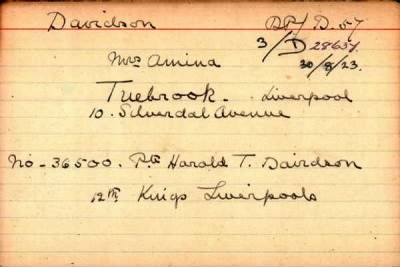 Davidson
3/D 28657
30/8/23.
Mrs Amina
Tuebrook. Liverpool
10. Silverdal Avenue
No - 36500. Pte Harold T. Davidson
12th Kings Liverpools